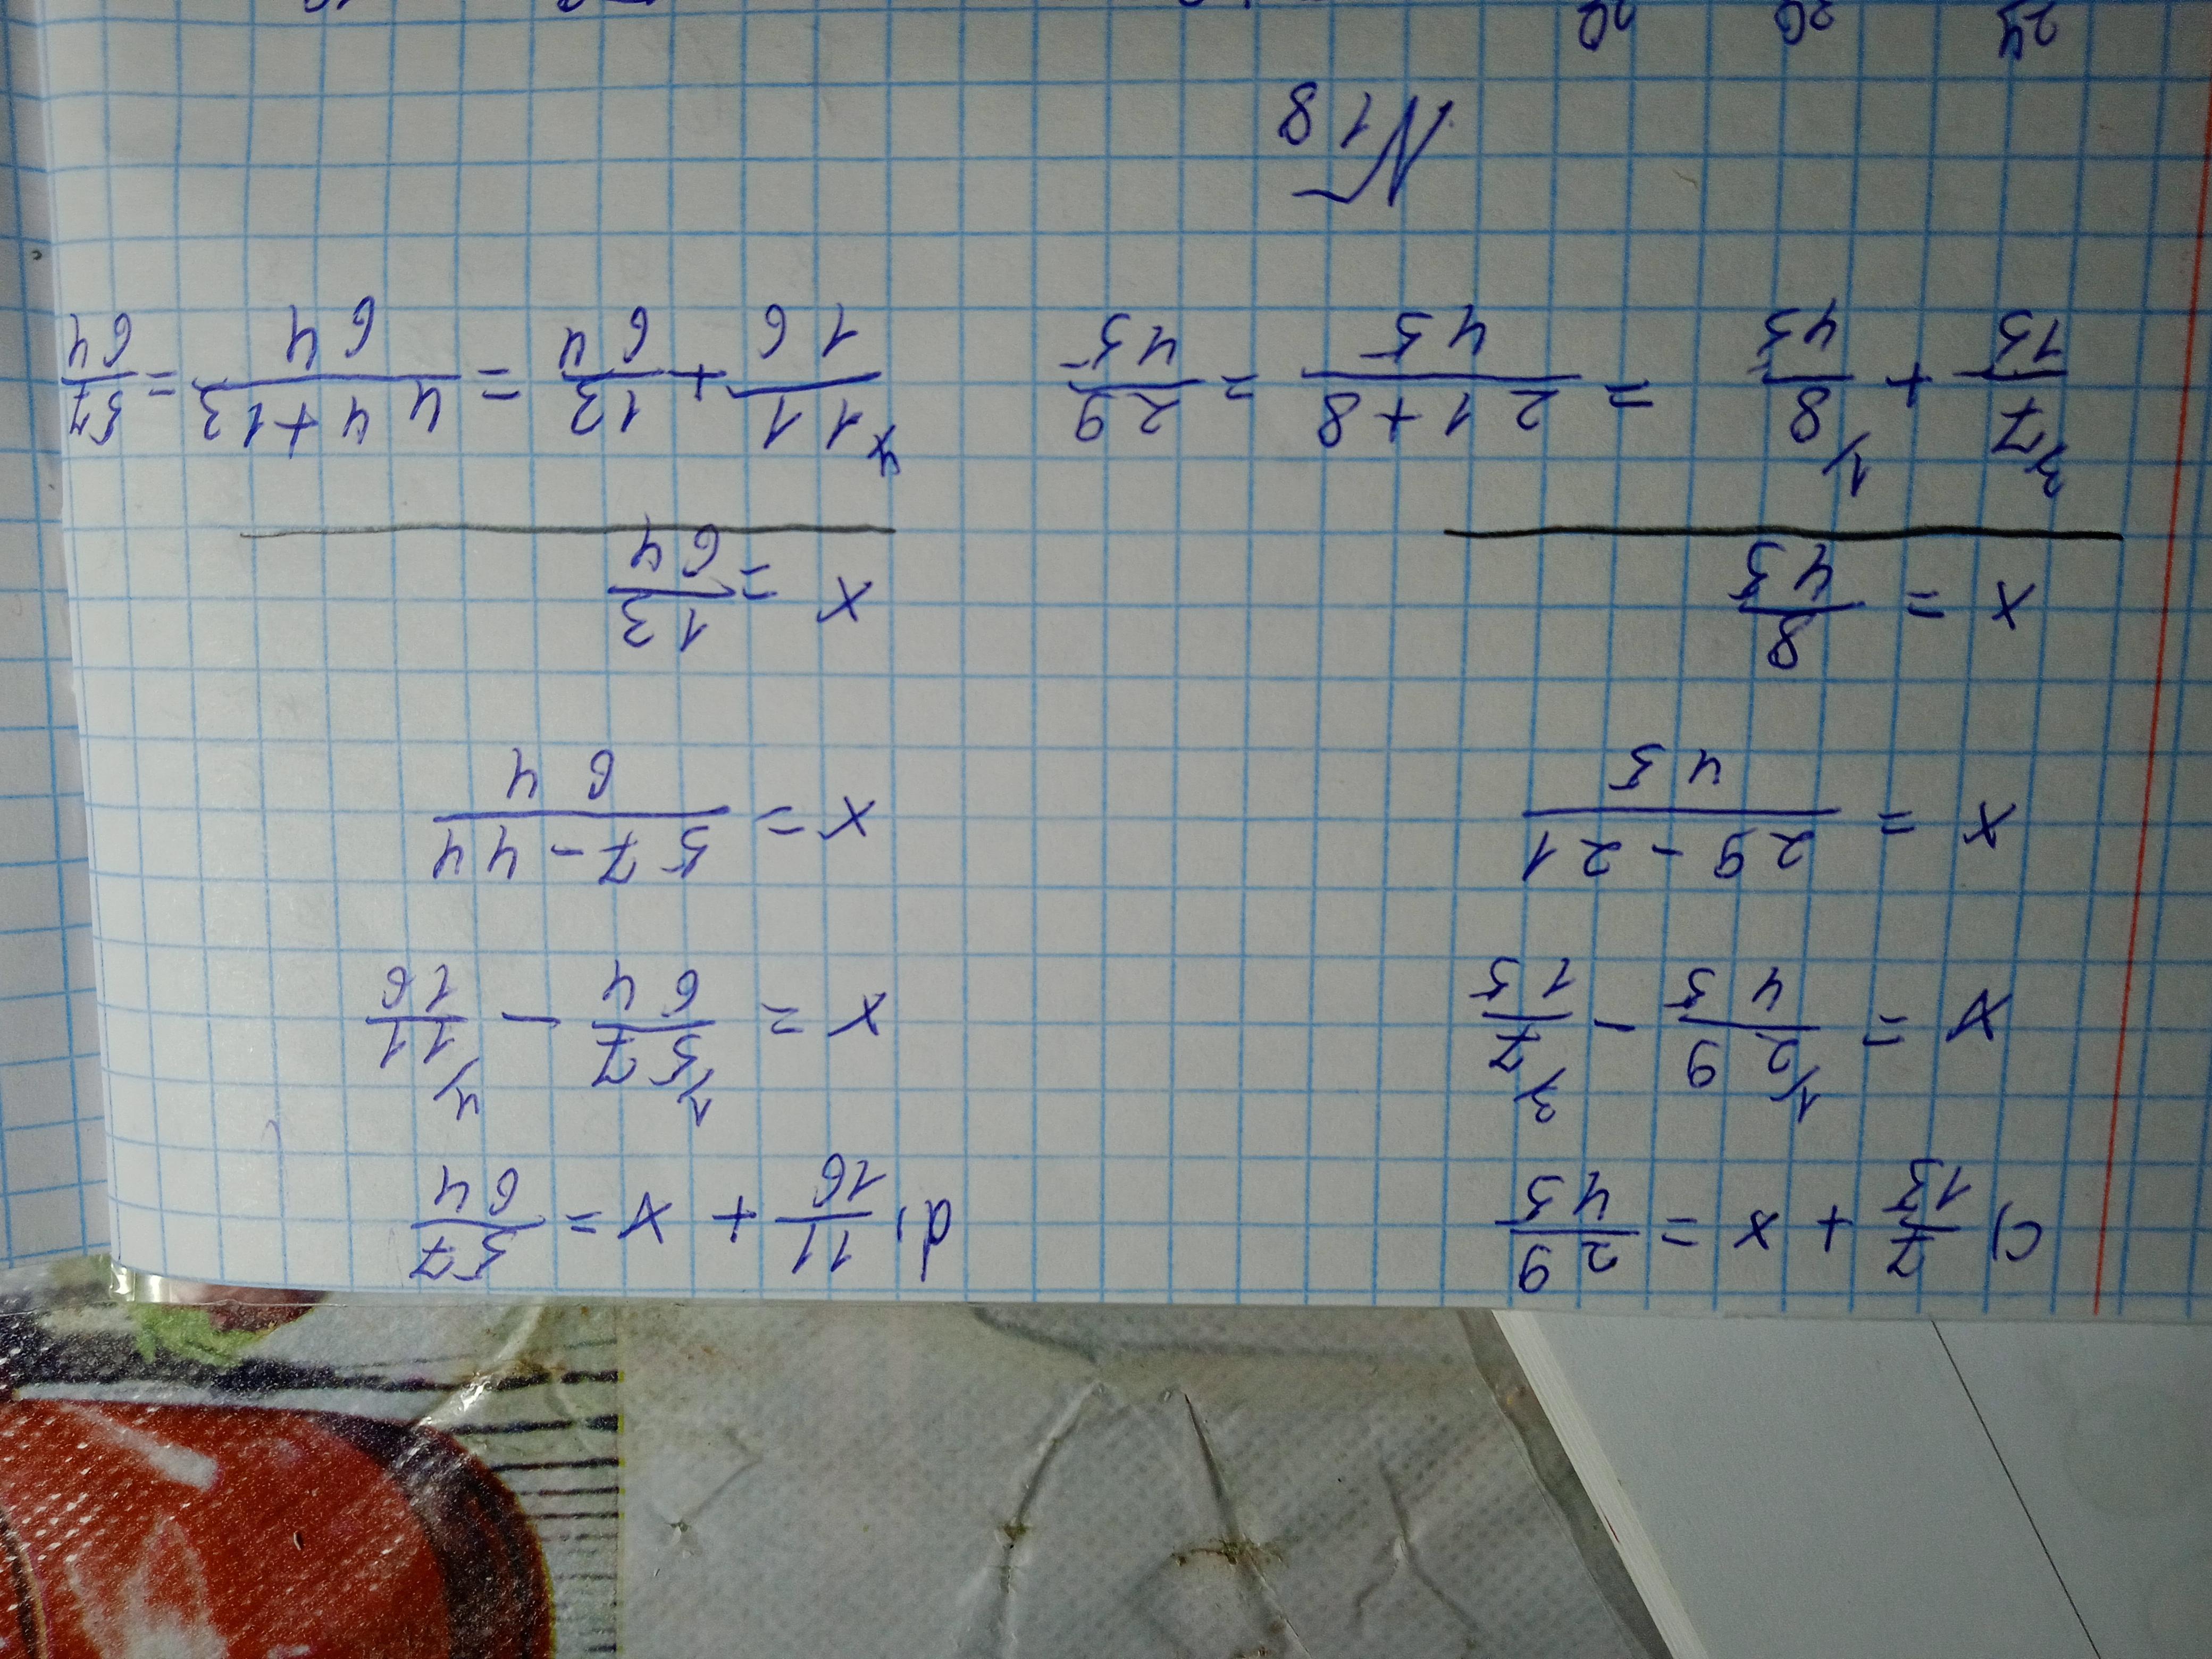 c) 7/15 + x = 29/45
x = 29/45 - 7/15
x = 29-21/45
x = 8/45
7/15 + 8/45 = 21+8/45 = 29/45
d) 11/16 + x = 57/64
x = 57/64 - 11/16
x = 57-44/64
x = 13/64
11/16 + 13/64 = 44+13/64 = 57/64
N18